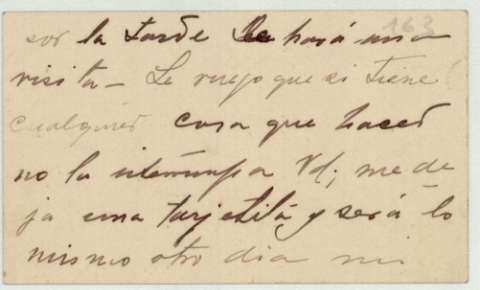 163
por la tarde le hará una
visita - Le ruego que si tiene
cualquier cosa que hacer
no la interrumpa Vd; me de
ja una tarjetita y será lo
mismo otro dia mi